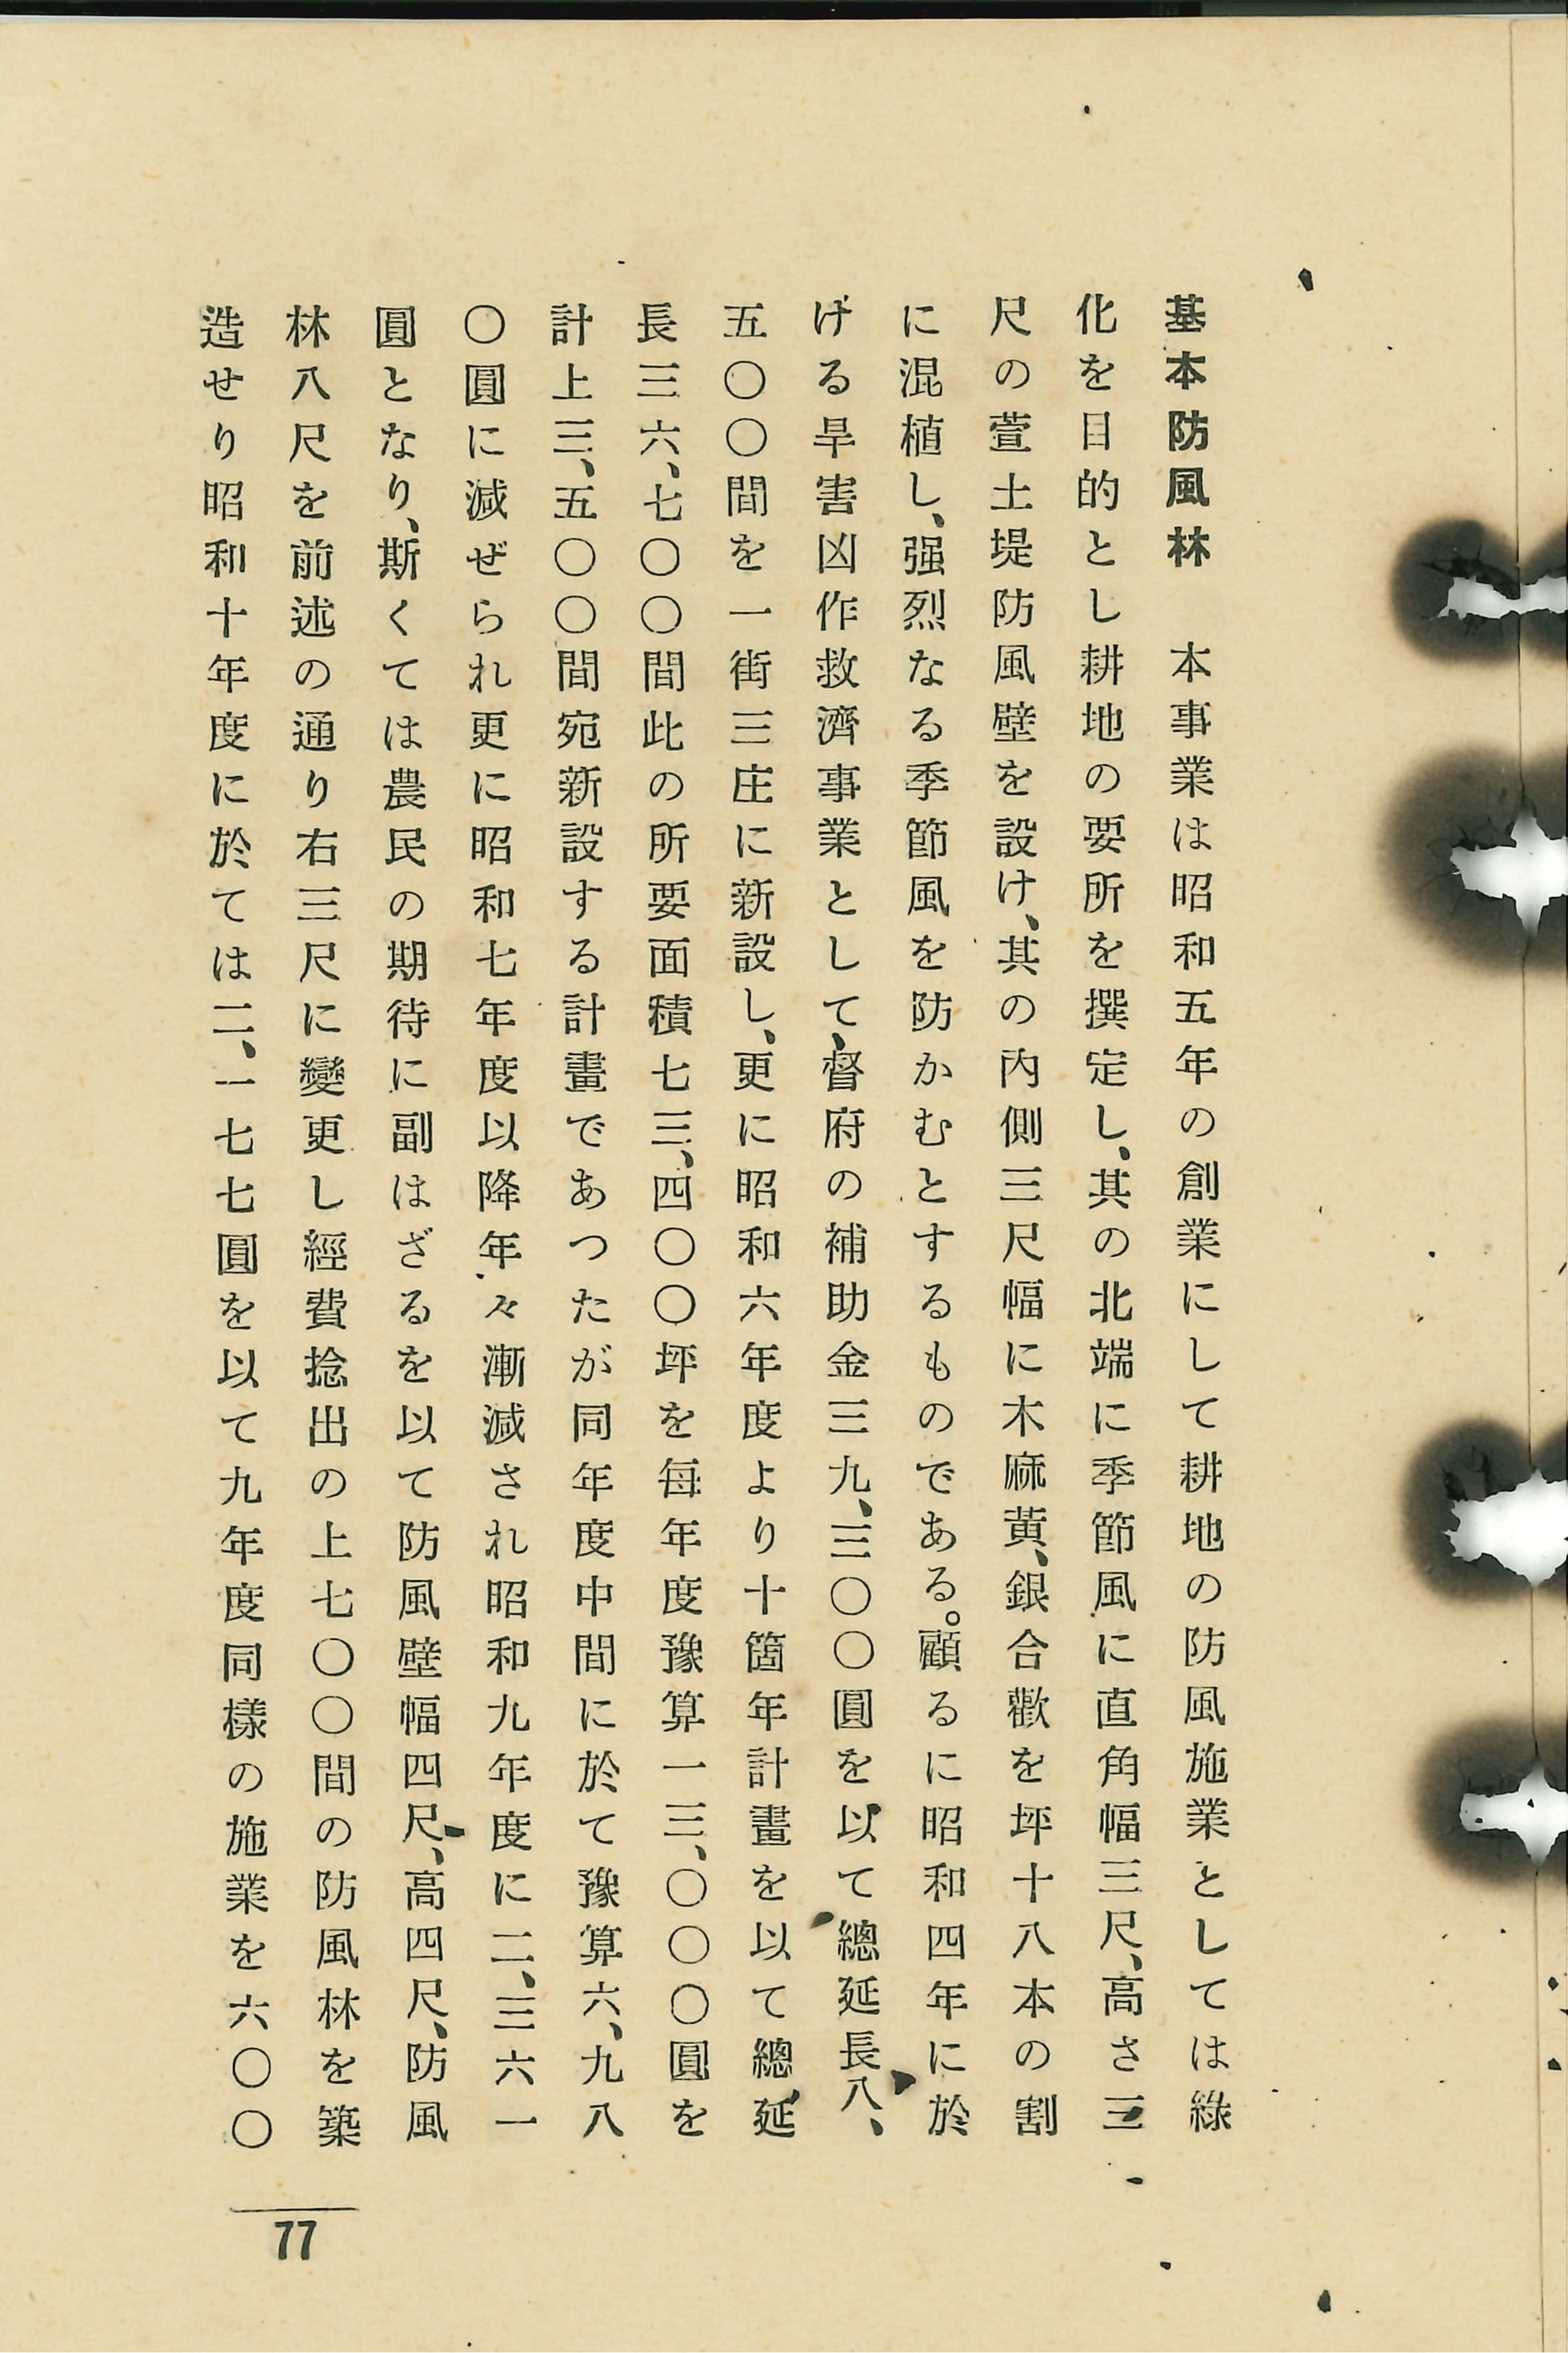 基本防風林　本事業は昭和五年の創業にして耕地の防風施業としては綠
化を目的とし耕地の要所を撰定し、其の北端に季節風に直角幅三尺、高さ三
尺の萱土堤防風壁を設け、其の內側三尺幅に木麻黃、銀合歡を坪十八本の割
に混植し、强烈なる季節風を防かむとするものである。顧るに昭和四年に於
ける旱害凶作救濟事業として、督府の補助金三九、三〇〇圓を以て總延長八、
五〇〇間を一街三庄に新設し、更に昭和六年度より十箇年計畫を以て總延
長三六、七〇〇間此の所要面積七三、四〇〇坪を每年度豫算一三、〇〇〇圓を
計上三、五〇〇間宛新設する計畫であつたが同年度中間に於て豫算六、九八
〇圓に減ぜられ更に昭和七年度以降年々漸減され昭和九年度に二、三六一
圓となり、斯くては農民の期待に副はざるを以て防風壁幅四尺、高四尺、防風
林八尺を前述の通り右三尺に變更し經費捻出の上七〇〇間の防風林を築
造せり昭和十年度に於ては二、一七七圓を以て九年度同樣の施業を六〇〇
77